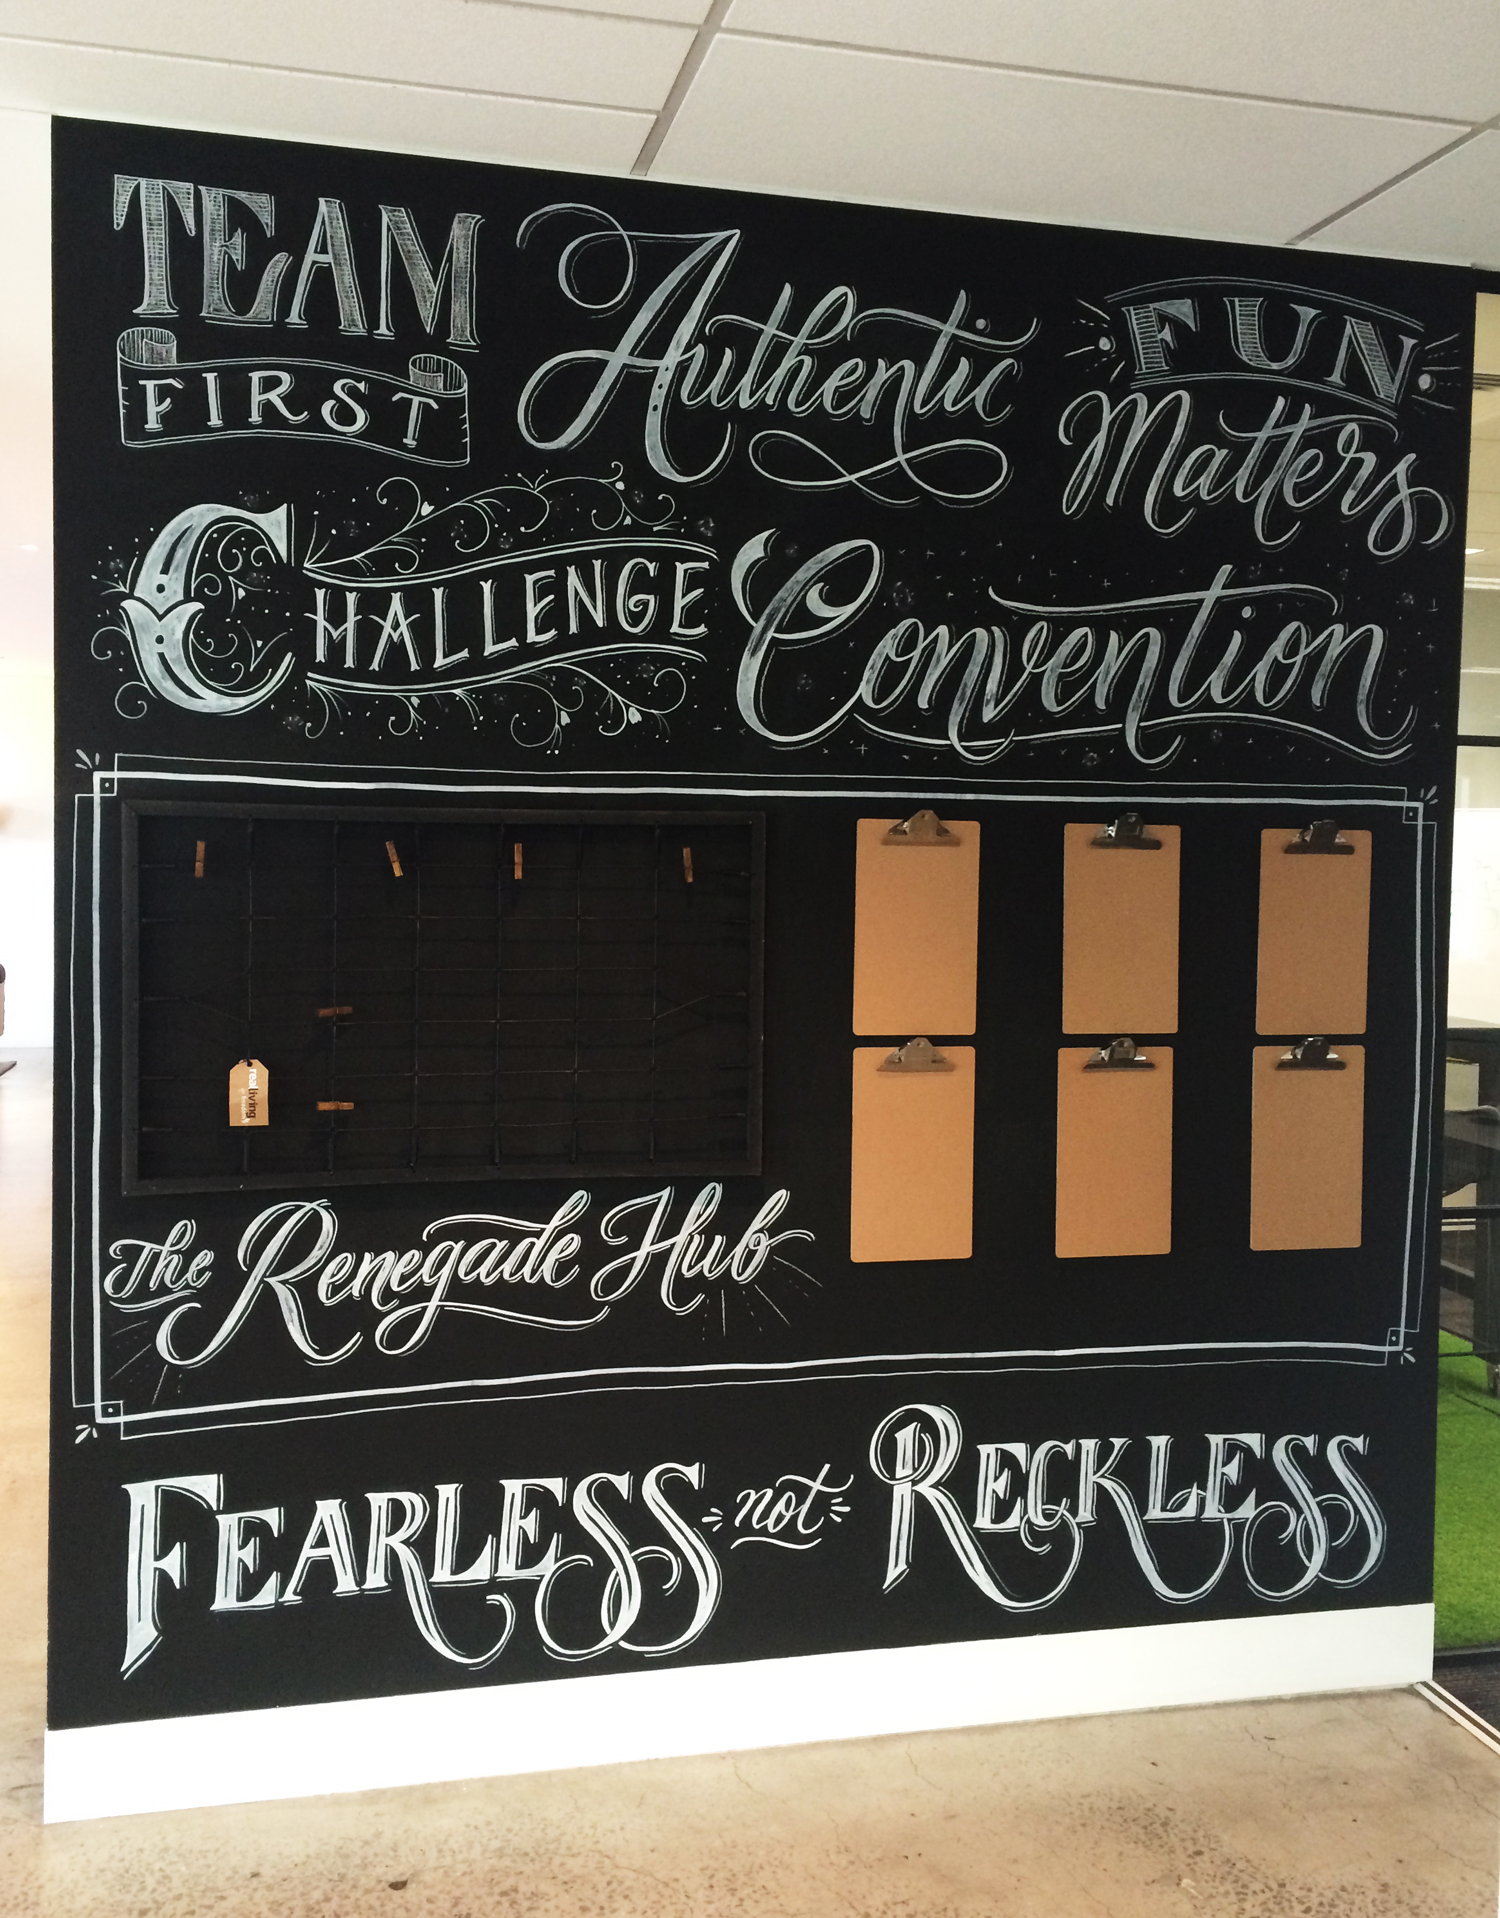 TEAM
FIRST
Authentic
FUN
Matters
CHALLENGE
Convention
realliving
The Renegade Hub
FEARLESS not RECKLESS